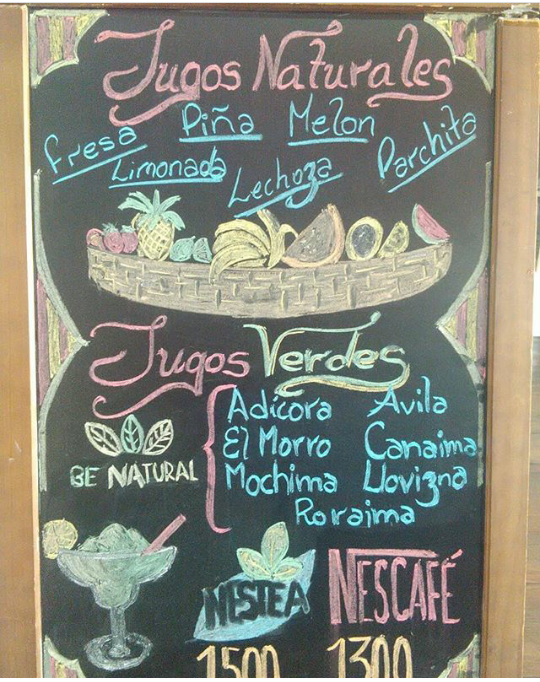 Jugos Naturales
Fresa Piña Melon Parchita
Limonada Lechoza
Jugos Verdes
BE NATURAL
Adicora Avila
El Morro Canaima
Mochima Llovizna
Roraima
NESTEA NESCAFÉ
1500 1300